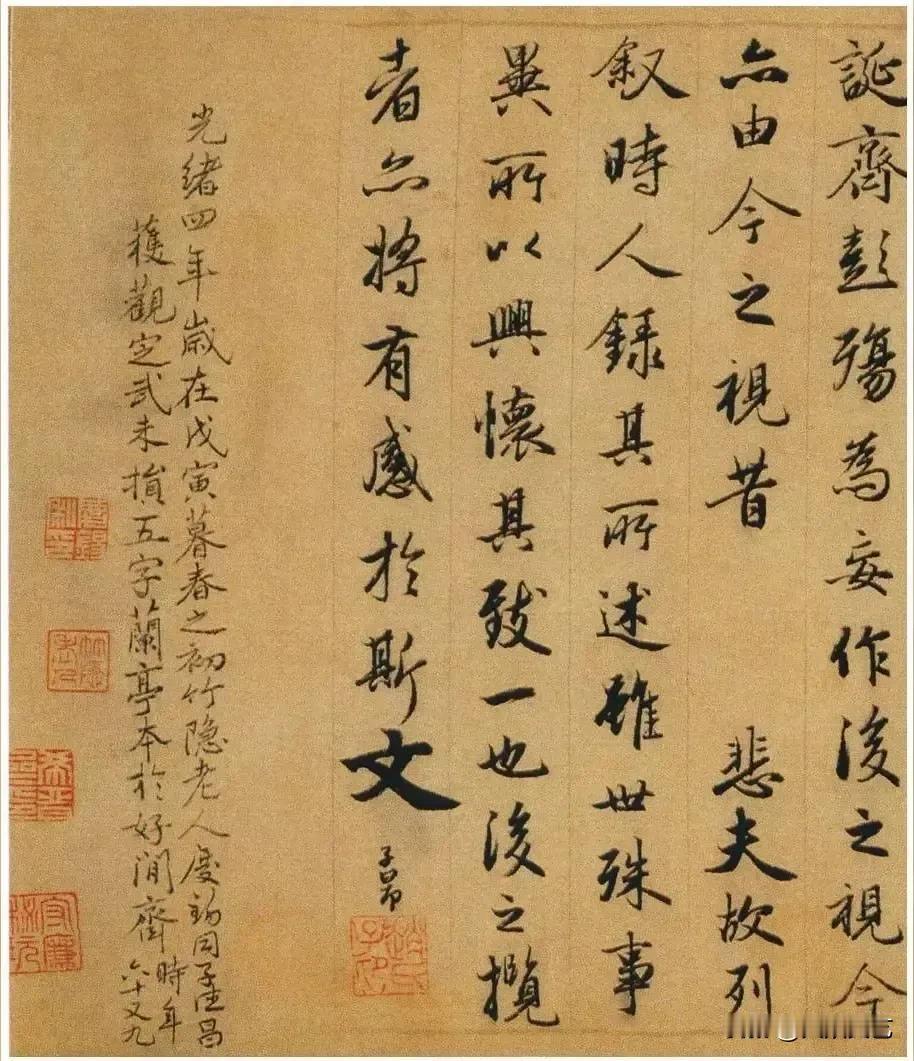 誕齊彭殤為妄作後之視今
亦由今之視昔 悲夫故列
叙時人錄其所述雖世殊事
異所以興懷其致一也後之攬
者亦將有感於斯文
子昂
趙氏子昂
光緒四年歲在戊寅暮春之初竹隐老人慶錫同子佳昌
獲觀定武未損五字蘭亭本於好閒齋時年
六十又九